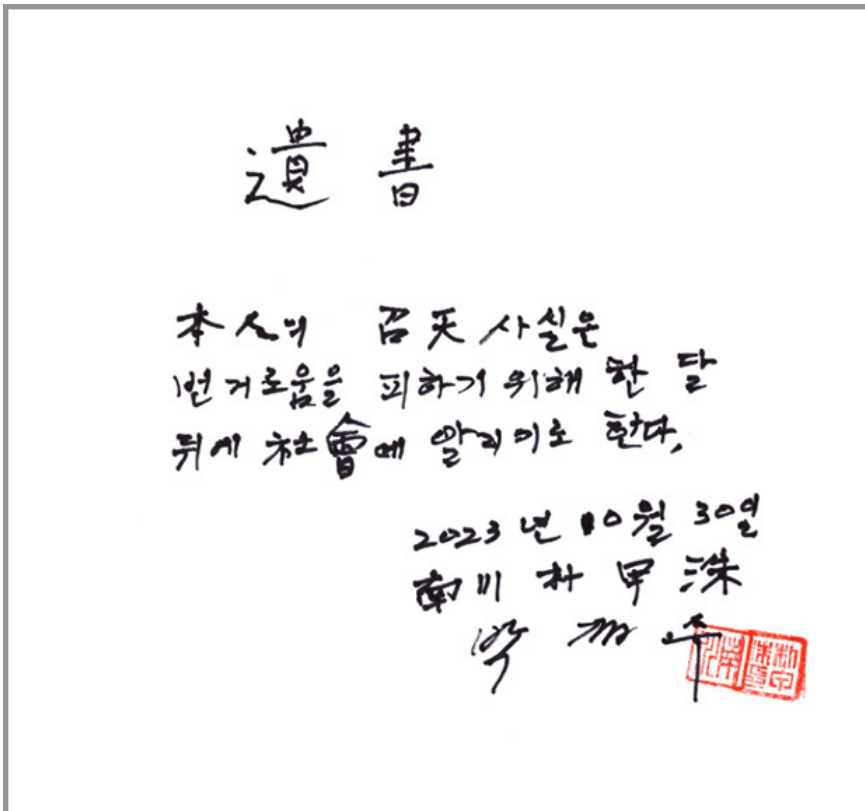 遺書
本人의 召天 사실은
번거로움을 피하기 위해 한 달
뒤에 社會에 알리기로 한다.
2023년 10월 30일
南川 朴甲洙
박갑수